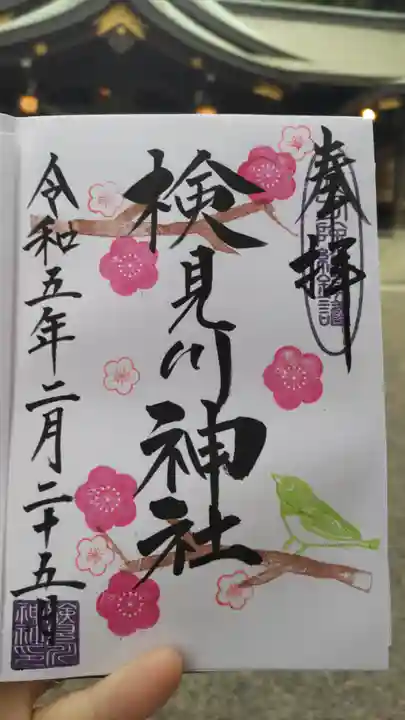 奉拝
検見川神社
令和五年二月二十五日